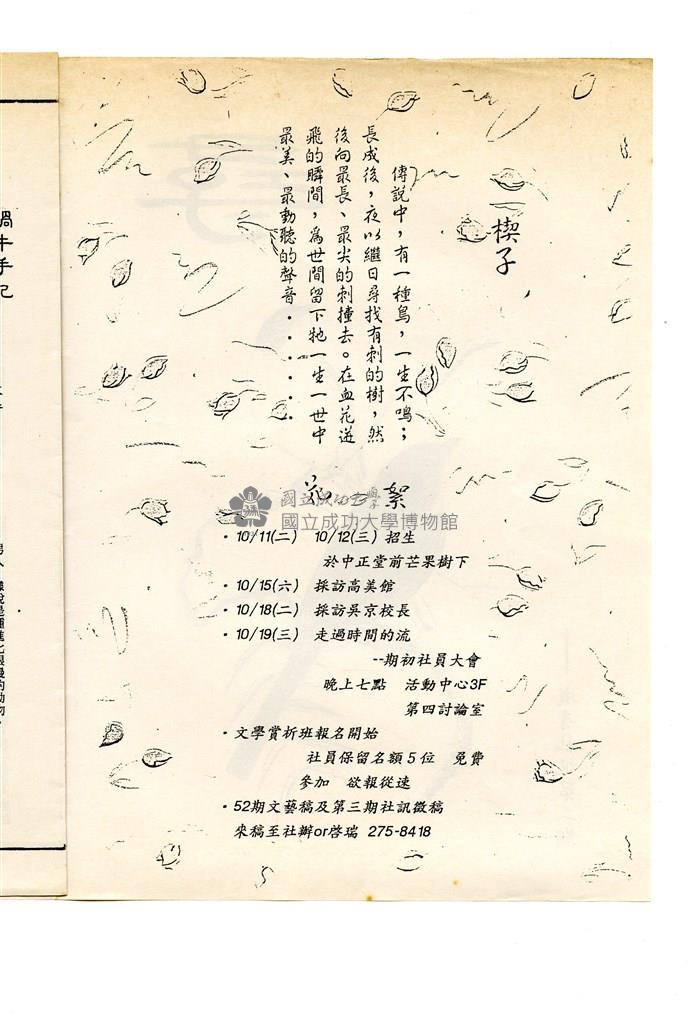 楔子
傳說中，有一種鳥，一生不鳴；
長成後，夜以繼日尋找有刺的樹，然
後向最長、最尖的刺撞去。在血花迸
飛的瞬間，為世間留下牠一生一世中
最美、最動聽的聲音．．．．．．
絮
國立成功大學博物館
・10/11(二) 10/12(三) 招生
於中正堂前芒果樹下
・10/15(六) 採訪高美館
・10/18(二) 採訪吳京校長
・10/19(三) 走過時間的流
--期初社員大會
晚上七點 活動中心3F
第四討論室
・文學賞析班報名開始
社員保留名額5位 免費
參加 欲報從速
・52期文藝稿及第三期社訊徵稿
來稿至社辦or啓瑞 275-8418
蝸牛手記